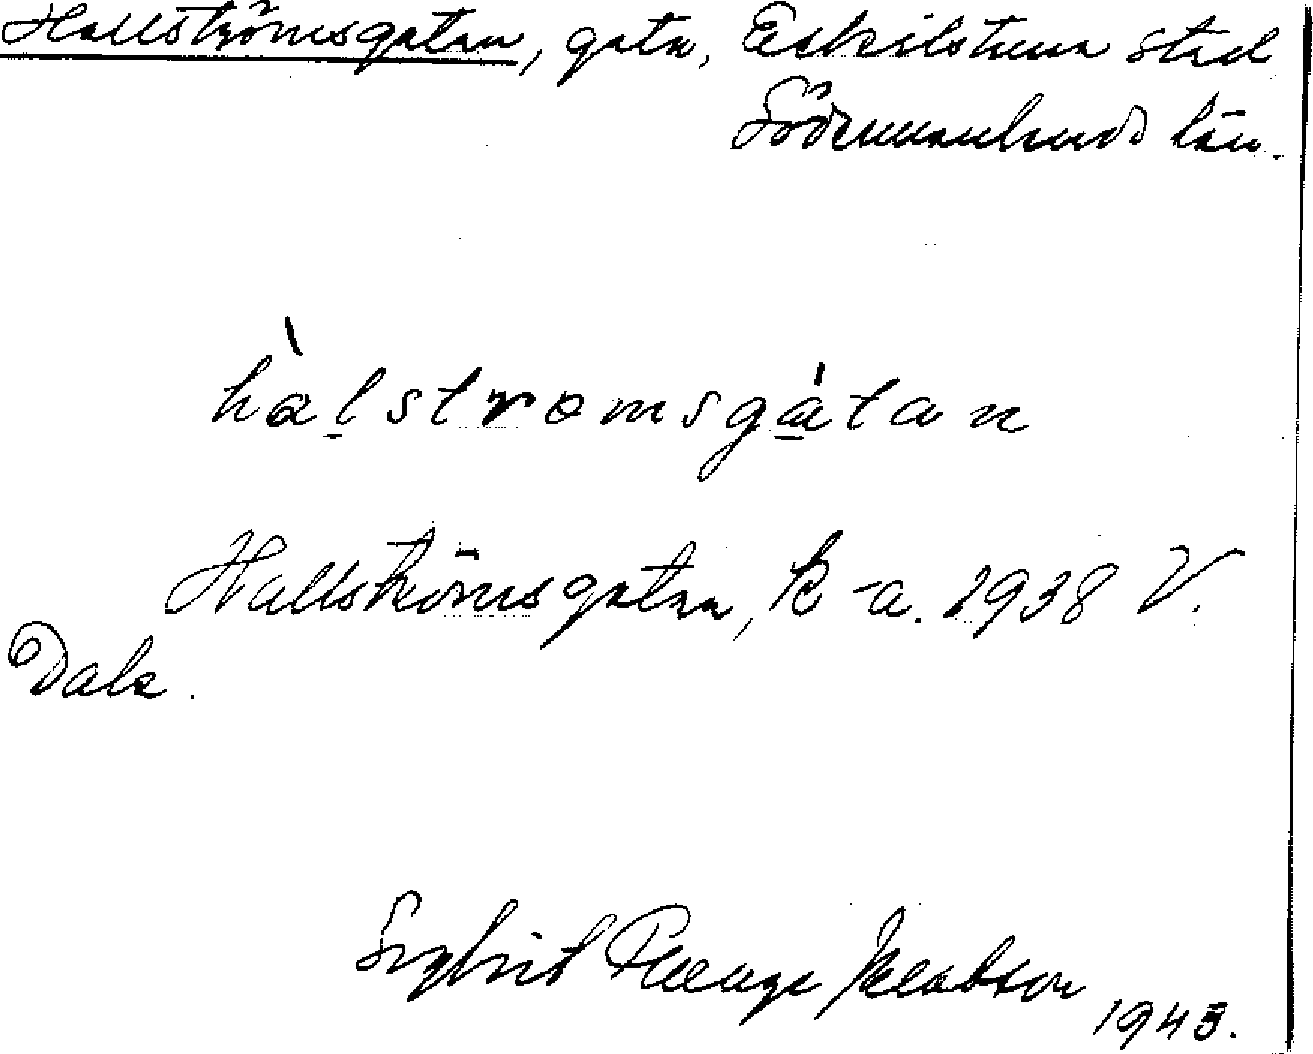 Hallströmsgatan, gata, Eskilstuna stad
Södermanlands län.
hàlstromsgátan
Hallströmsgatan, k-a. 1938 V.
Dale.
Sigbrit Plænge Jacobson
1943.